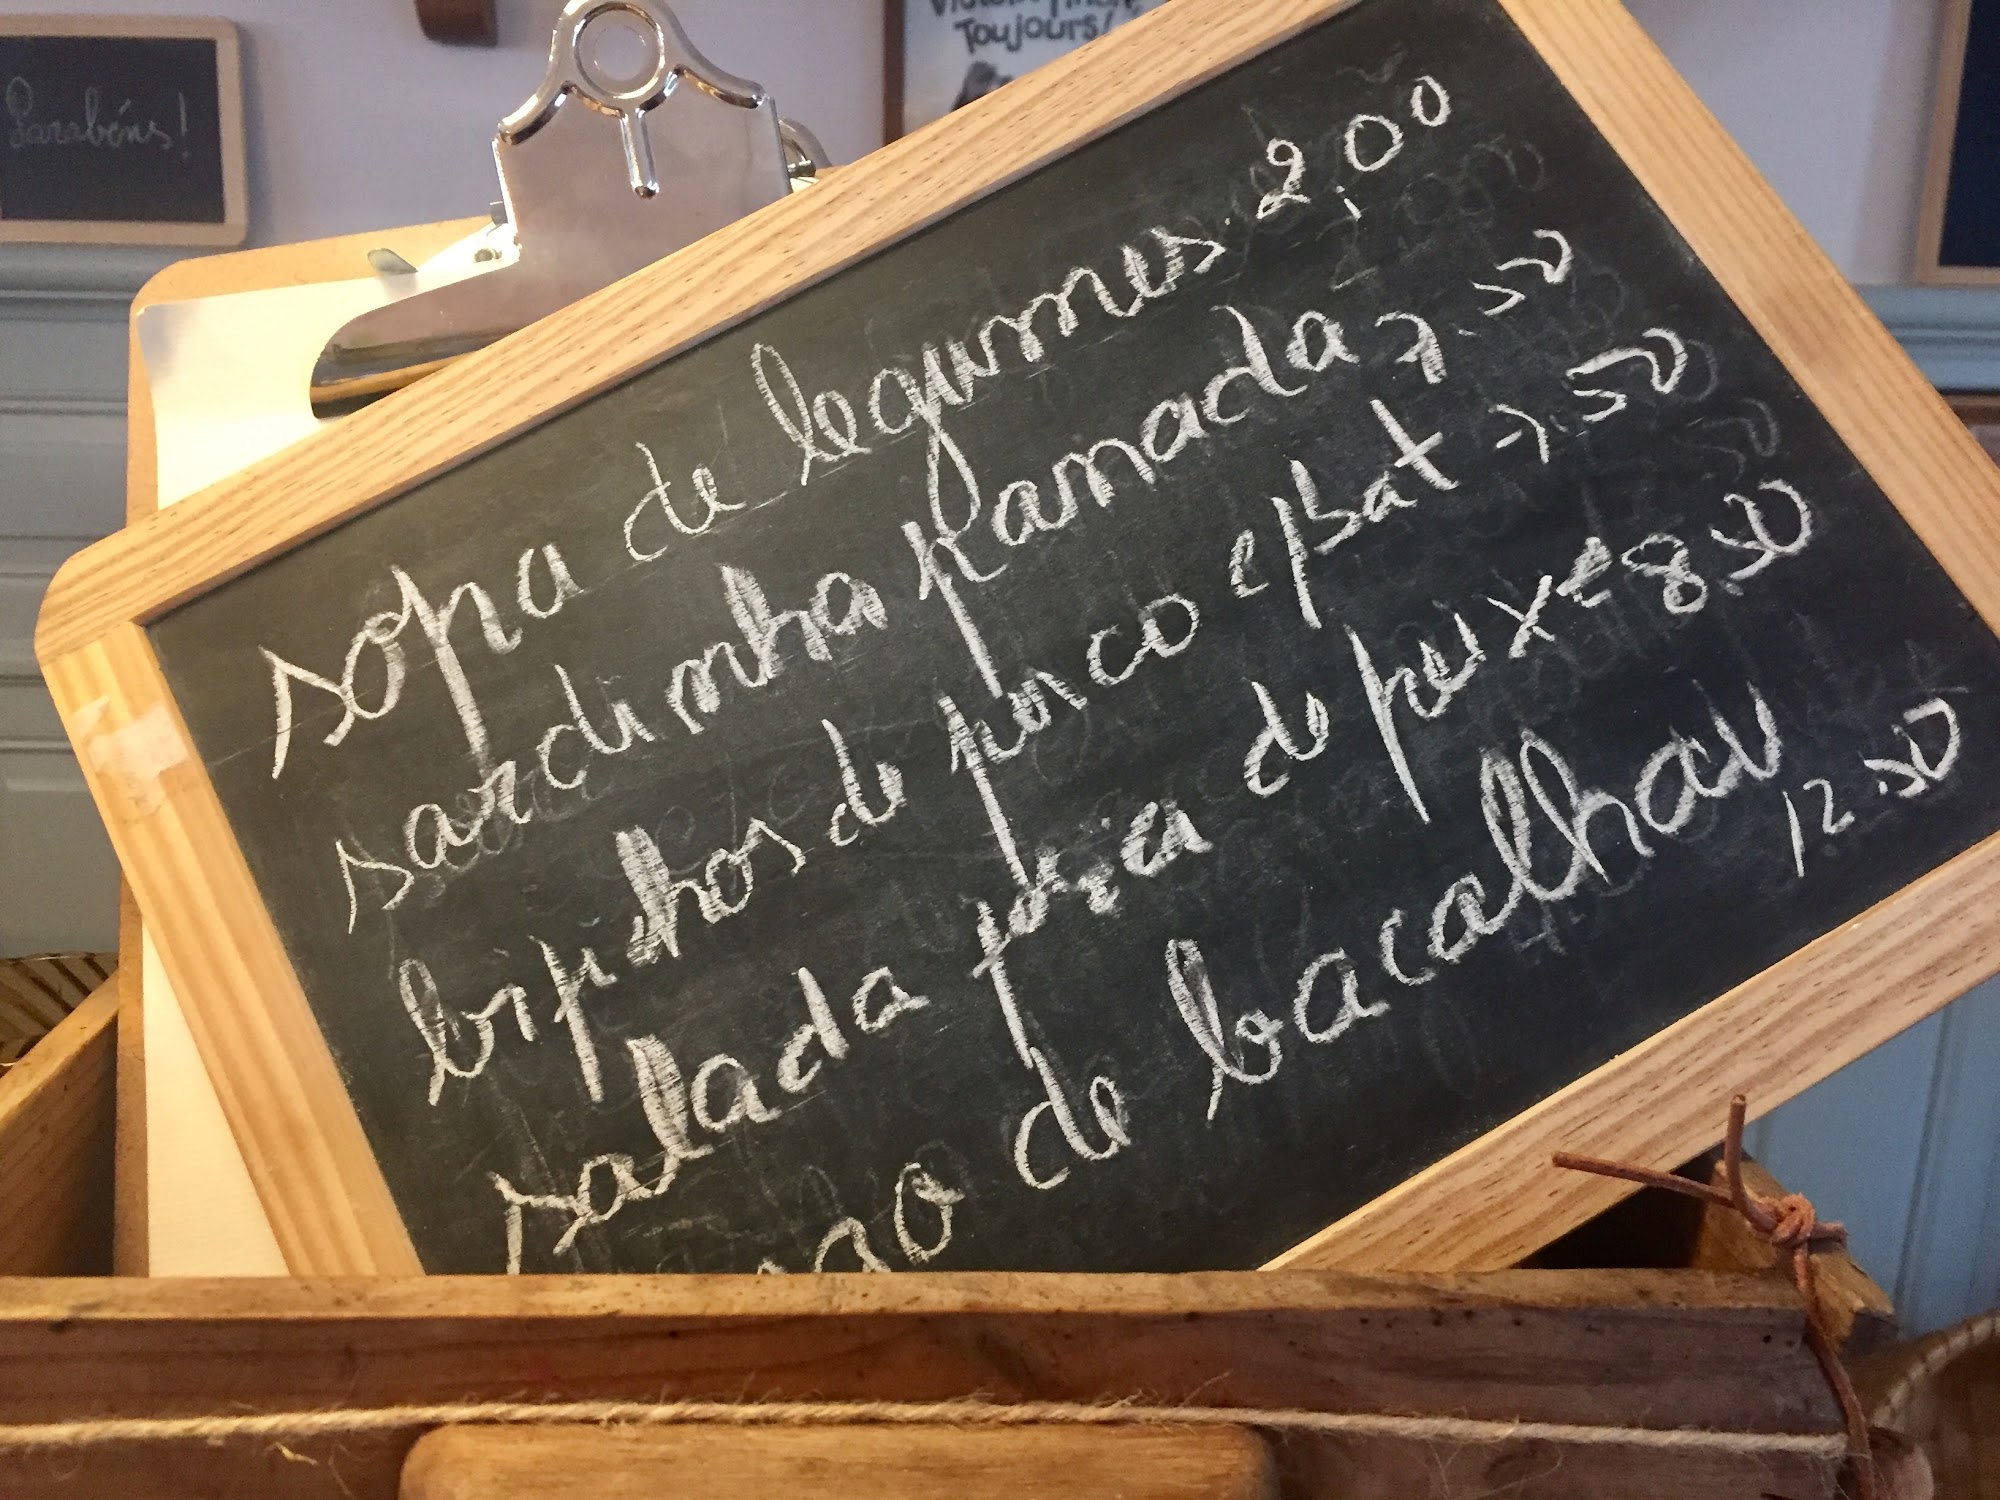 Parabéns!
Toujours!
sopa de legumes. 2,00
sardinha panada 7.50
bifinhos de porco c/bat 7.50
salada fria de peixe 8.50
de bacalhau 12.50